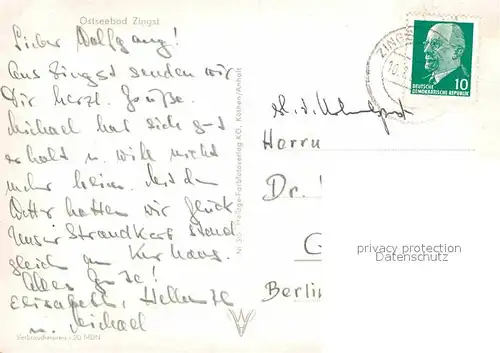 Ostseebad Zingst
Lieber Wolfgang!
Aus Zingst senden wir
Dir herzl. Grüße.
Michael hat sich gut
erholt u. will nicht
mehr heim. Mit dem
Wetter hatten wir Glück
Unser Strandkorb stand
gleich am Kurhaus.
Alles Gute!
Elisabeth,
u. Michael
Verbraucherpreis: -,20 MDN
ZINGST
10
DEUTSCHE
DEMOKRATISCHE REPUBLIK
Herrn
Dr.
G
Berlin
privacy protection
Datenschutz